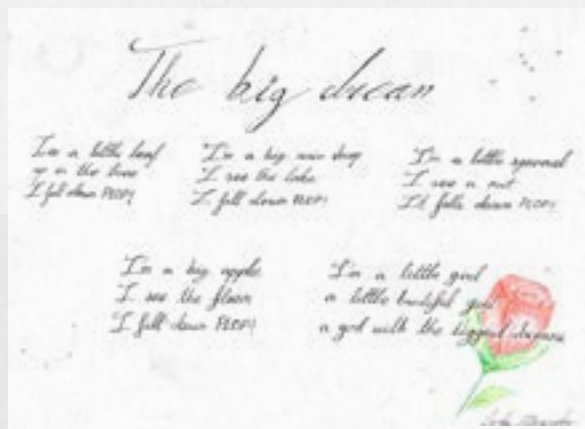 The big dream
I'm a little leaf
up in the tree
I fall down PLOP!
I'm a big rain drop
I see the lake
I fall down PLOP!
I'm a little squirrel
I see a nut
It falls down PLOP!
I'm a big apple
I see the floor
I fall down PLOP!
I'm a little girl
a little beautiful girl
a girl with the biggest